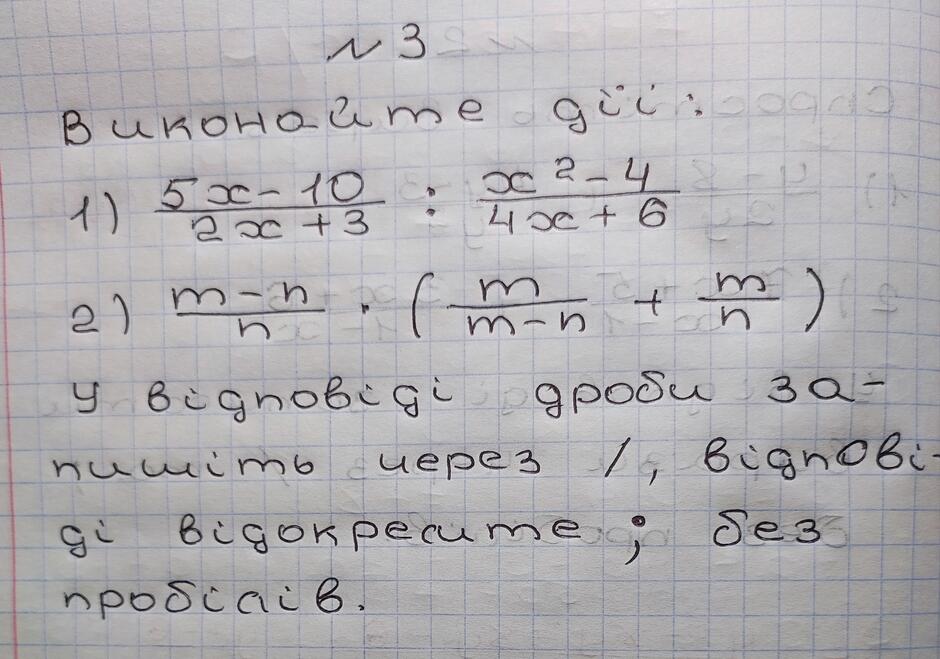 №3
Виконайте дії:
1) (5x-10)/(2x+3) : (x²-4)/(4x+6)
2) (m-n)/n · (m/(m-n) + m/n)
У відповіді дроби за-
пишіть через /, відпові-
ді відокремите ; без
пробілів.